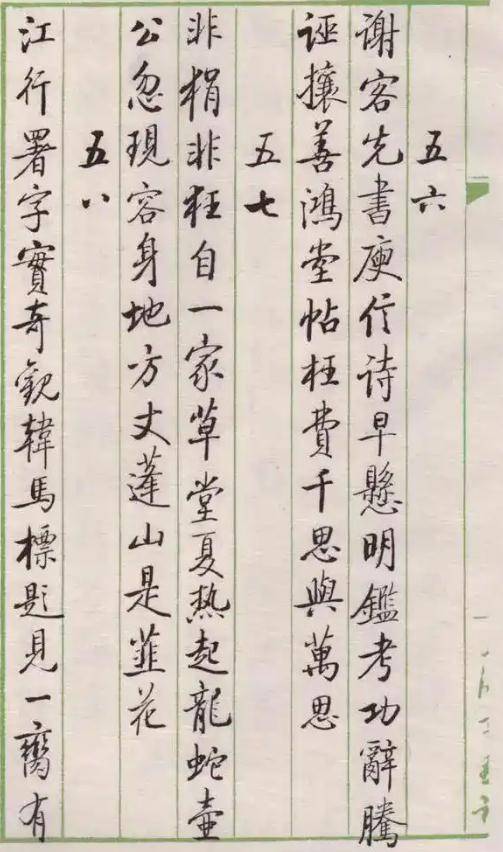 五六
谢客先書庾信诗早懸明鑑考功辭騰
诬攘善鴻堂帖枉費千思與萬思
五七
非狷非狂自一家草堂夏热起龍蛇壷
公忽現容身地方丈蓬山是韮花
五八
江行署字實奇觀韓馬標題見一臠有